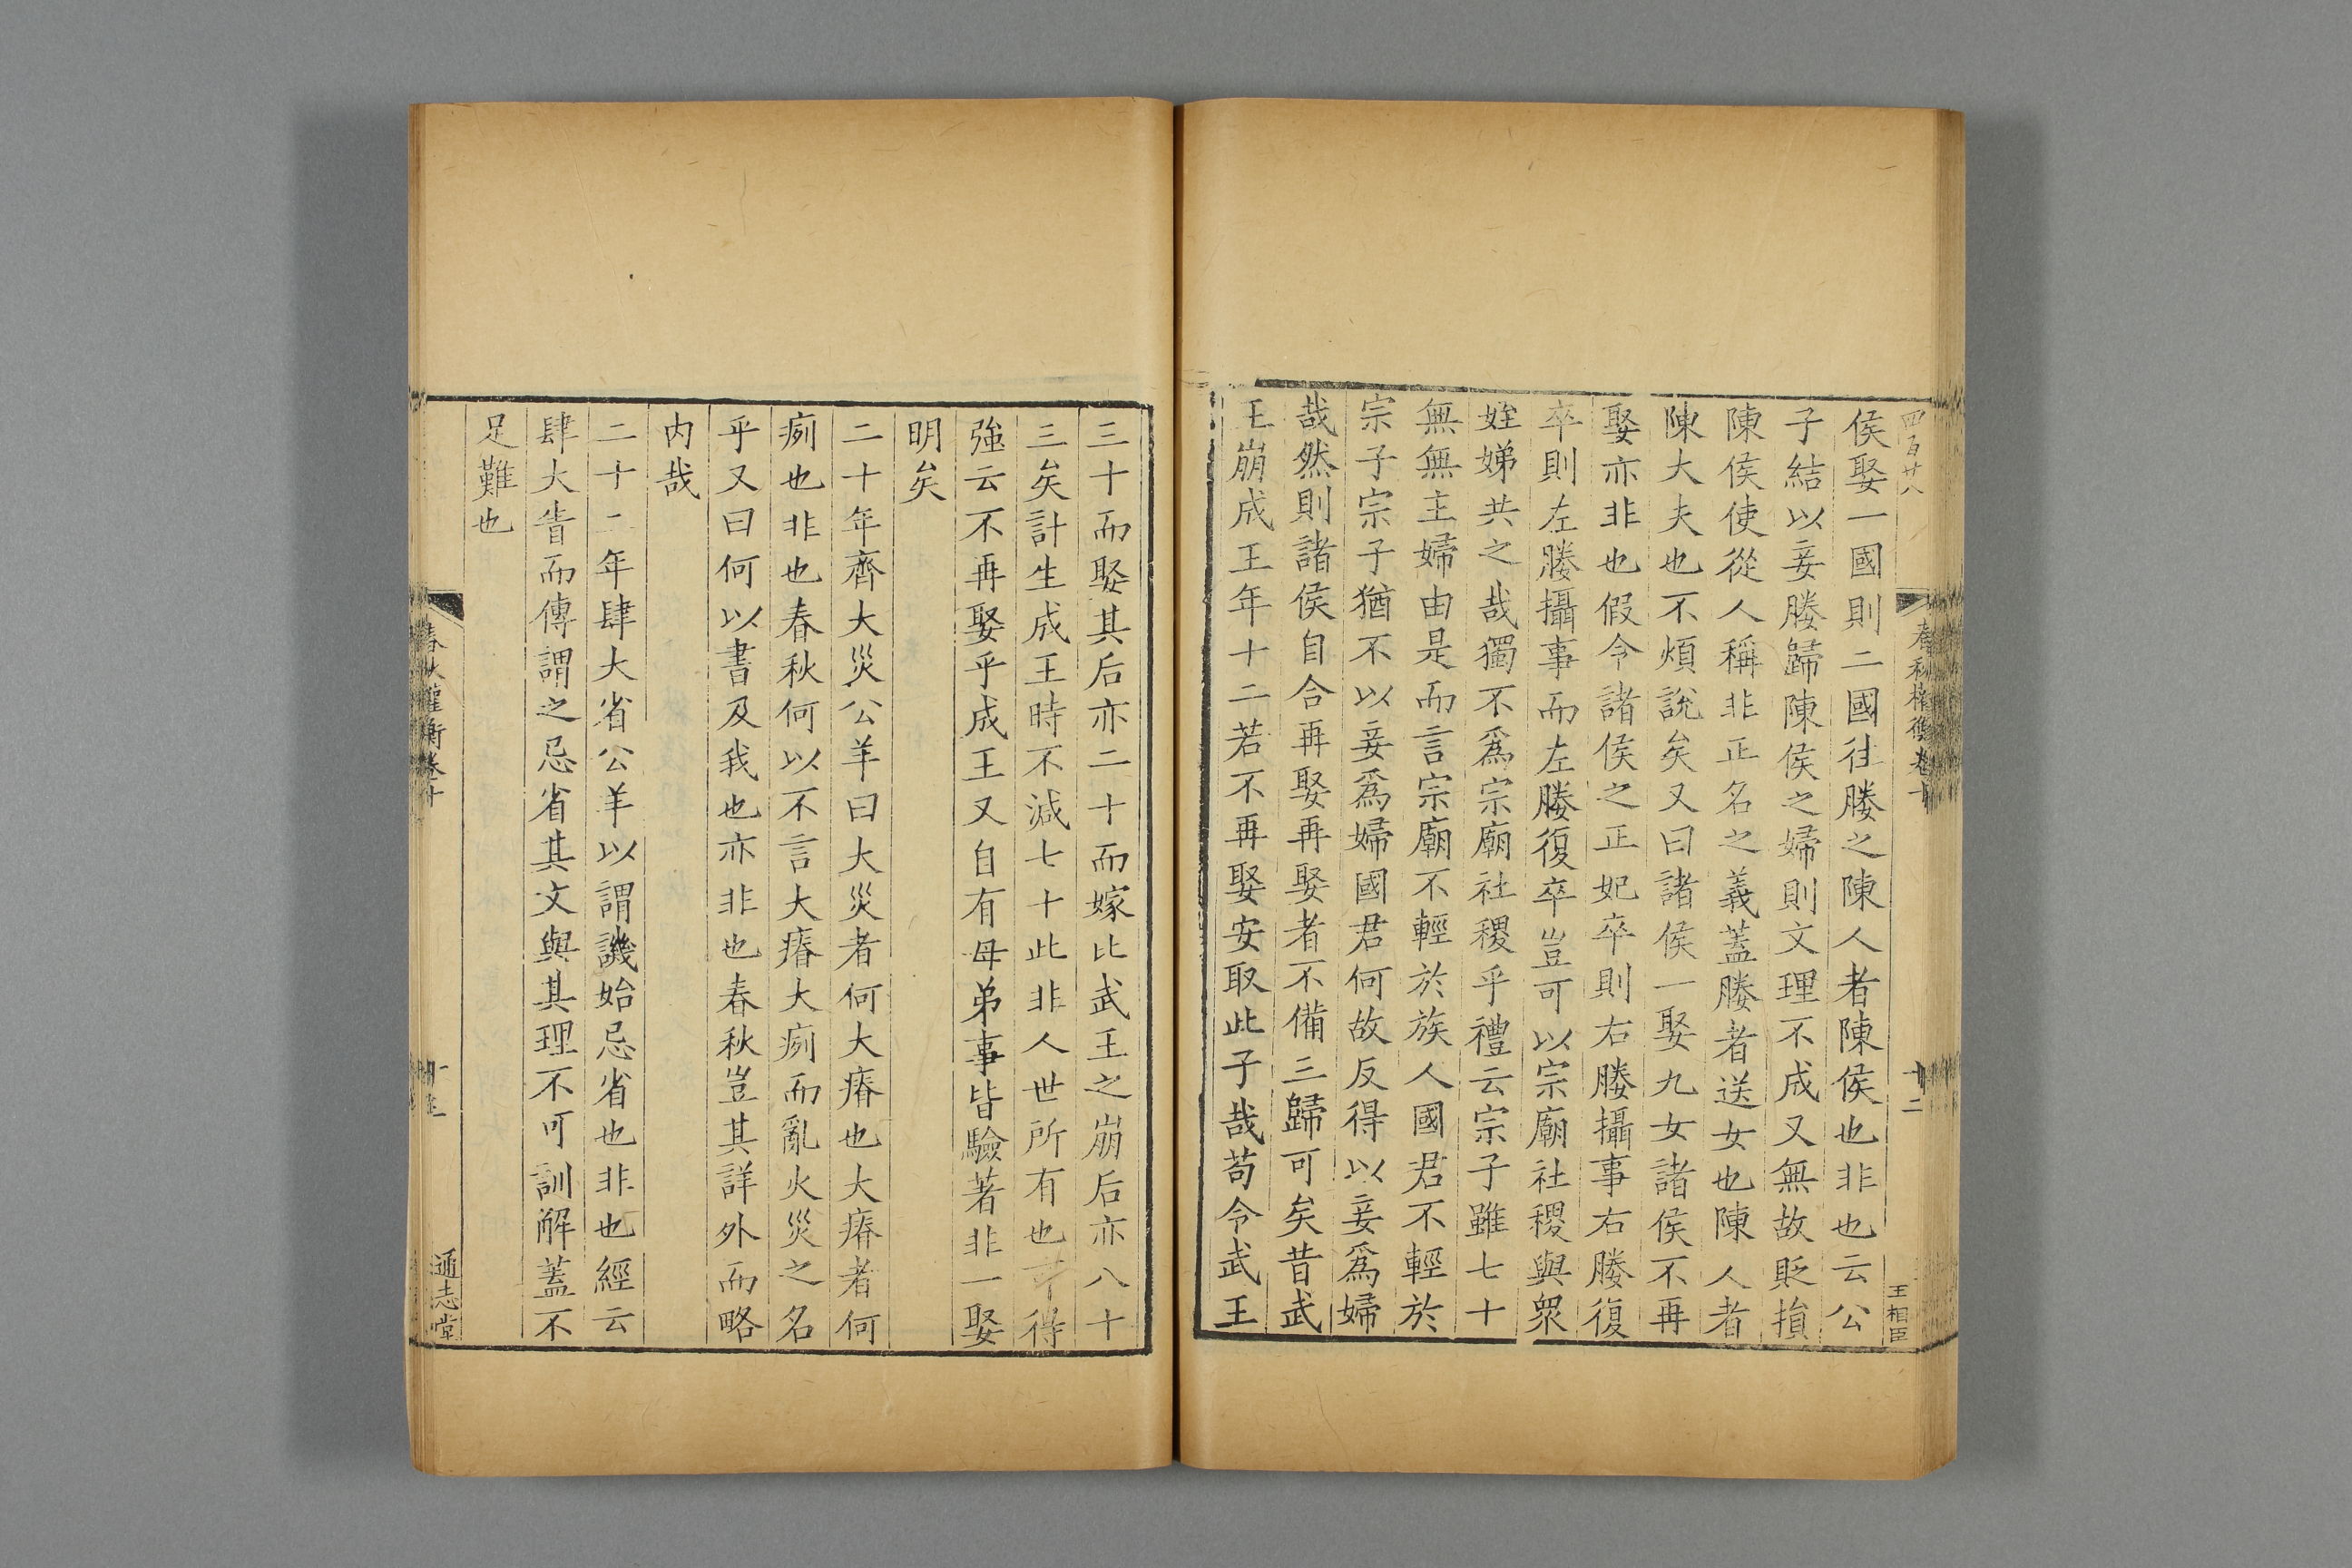 四百廿八
春秋權衡卷十
十二
王相臣
侯娶一國則二國往媵之陳人者陳侯也非也云公
子結以妾媵歸陳侯之婦則文理不成又無故貶損
陳侯使從人稱非正名之義蓋媵者送女也陳人者
陳大夫也不煩說矣又曰諸侯一娶九女諸侯不再
娶亦非也假令諸侯之正妃卒則右媵攝事右媵復
卒則左媵攝事而左媵復卒豈可以宗廟社稷與眾
姪娣共之哉獨不爲宗廟社稷乎禮云宗子雖七十
無無主婦由是而言宗廟不輕於族人國君不輕於
宗子宗子猶不以妾爲婦國君何故反得以妾爲婦
哉然則諸侯自合再娶再娶者不備三歸可矣昔武
王崩成王年十二若不再娶安取此子哉苟令武王
三十而娶其后亦二十而嫁比武王之崩后亦八十
三矣計生成王時不減七十此非人世所有也苟得
強云不再娶乎成王又自有母弟事皆驗著非一娶
明矣
二十年齊大災公羊曰大災者何大瘠也大瘠者何
㾐也非也春秋何以不言大瘠大㾐而亂火災之名
乎又曰何以書及我也亦非也春秋豈其詳外而略
内哉
二十二年肆大省公羊以謂譏始忌省也非也經云
肆大眚而傳謂之忌省其文與其理不可訓解蓋不
足難也
春秋權衡卷十
通志堂